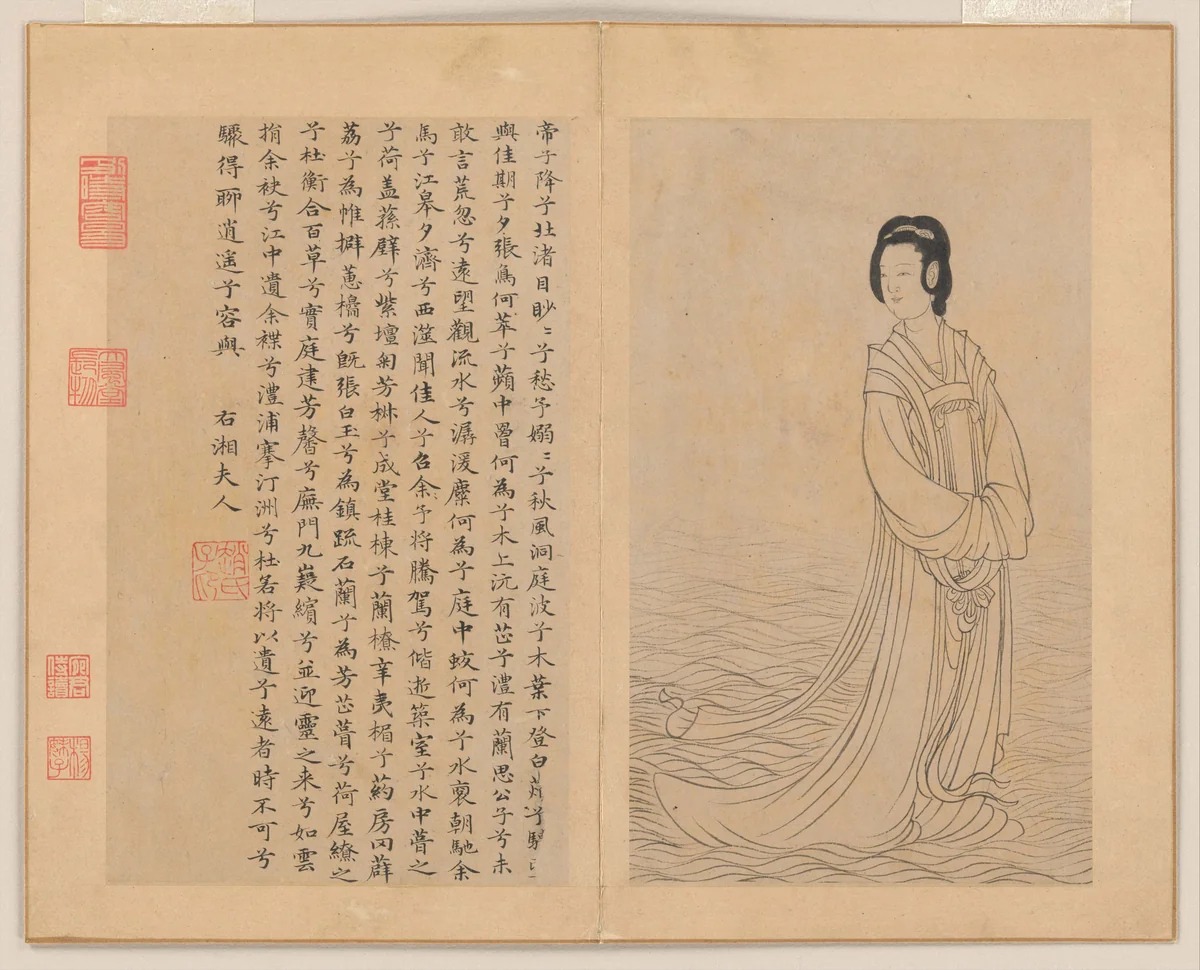 帝子降兮北渚目眇〻兮愁予嫋〻兮秋風洞庭波兮木葉下登白薠兮騁
與佳期兮夕張鳥何萃兮蘋中罾何為兮木上沅有芷兮澧有蘭思公子兮未
敢言荒忽兮遠望觀流水兮潺湲麋何為兮庭中蛟何為兮水裔朝馳余
馬兮江皋夕濟兮西澨聞佳人兮召余予将騰駕兮偕逝築室兮水中葺之
兮荷盖蓀壁兮紫壇匊芳椒兮成堂桂棟兮蘭橑辛夷楣兮葯房罔薜
荔兮為帷擗蕙櫋兮既張白玉兮為鎮疏石蘭兮為芳芷葺兮荷屋繚之
兮杜衡合百草兮實庭建芳馨兮廡門九嶷繽兮並迎靈之来兮如雲
捐余袂兮江中遺余褋兮澧浦搴汀洲兮杜若将以遺兮遠者時不可兮
驟得聊逍遥兮容與 右湘夫人
趙氏子昂